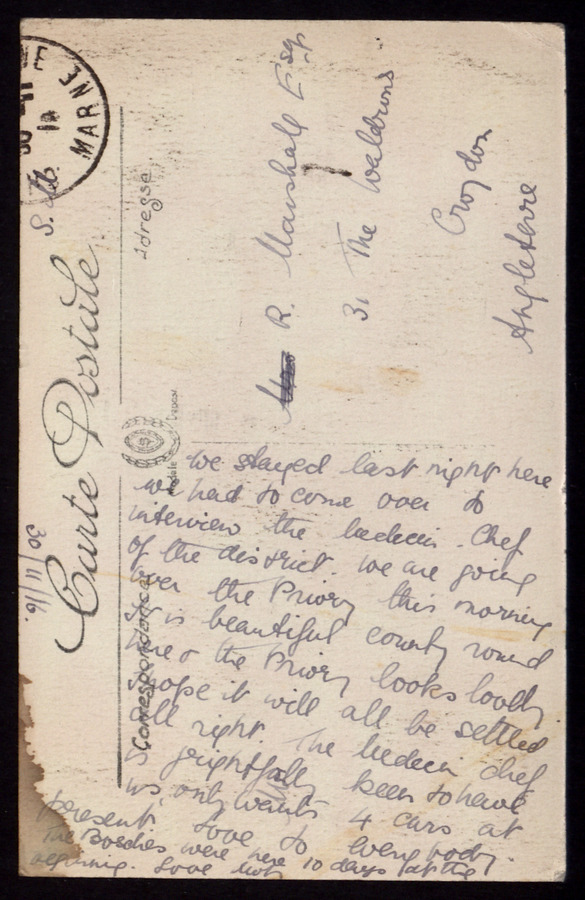 Carte Postale
Correspondance
Adresse
MARNE
30 - 11
16
30/11/16.
R. Marshall Esqr
31 The Waldrons
Croydon
Angleterre
we stayed last night here
we had to come over to
interview the medecin. Chef
of the district. We are going
over the Priory this morning
It is beautiful country round
here & the Priory looks lovely.
I hope it will all be settled
all right. The medecin chef
is frightfully keen to have
us, only wants 4 cars at
present, love to everybody.
The Bosches were here 10 days at the
beginning. Love